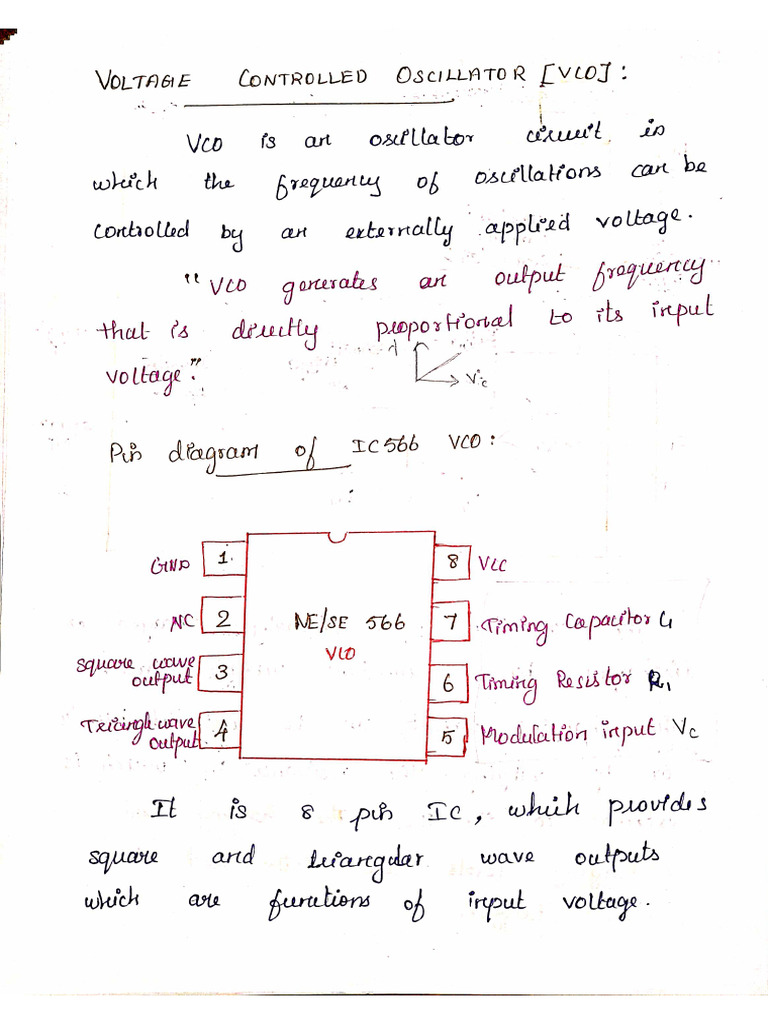 VOLTAGE CONTROLLED OSCILLATOR [VCO]:
VCO is an oscillator circuit in
which the frequency of oscillations can be
controlled by an externally applied voltage.
"VCO generates an output frequency
that is directly proportional to its input
voltage."
Vc
Pin diagram of IC566 VCO:
GND 1. 8 VCC
NC 2 NE/SE 566 7 Timing Capacitor C1
VCO
square wave output 3 6 Timing Resistor R1
Triangle wave output 4 5 Modulation input Vc
It is 8 pin IC, which provides
square and triangular wave outputs
which are functions of input voltage.